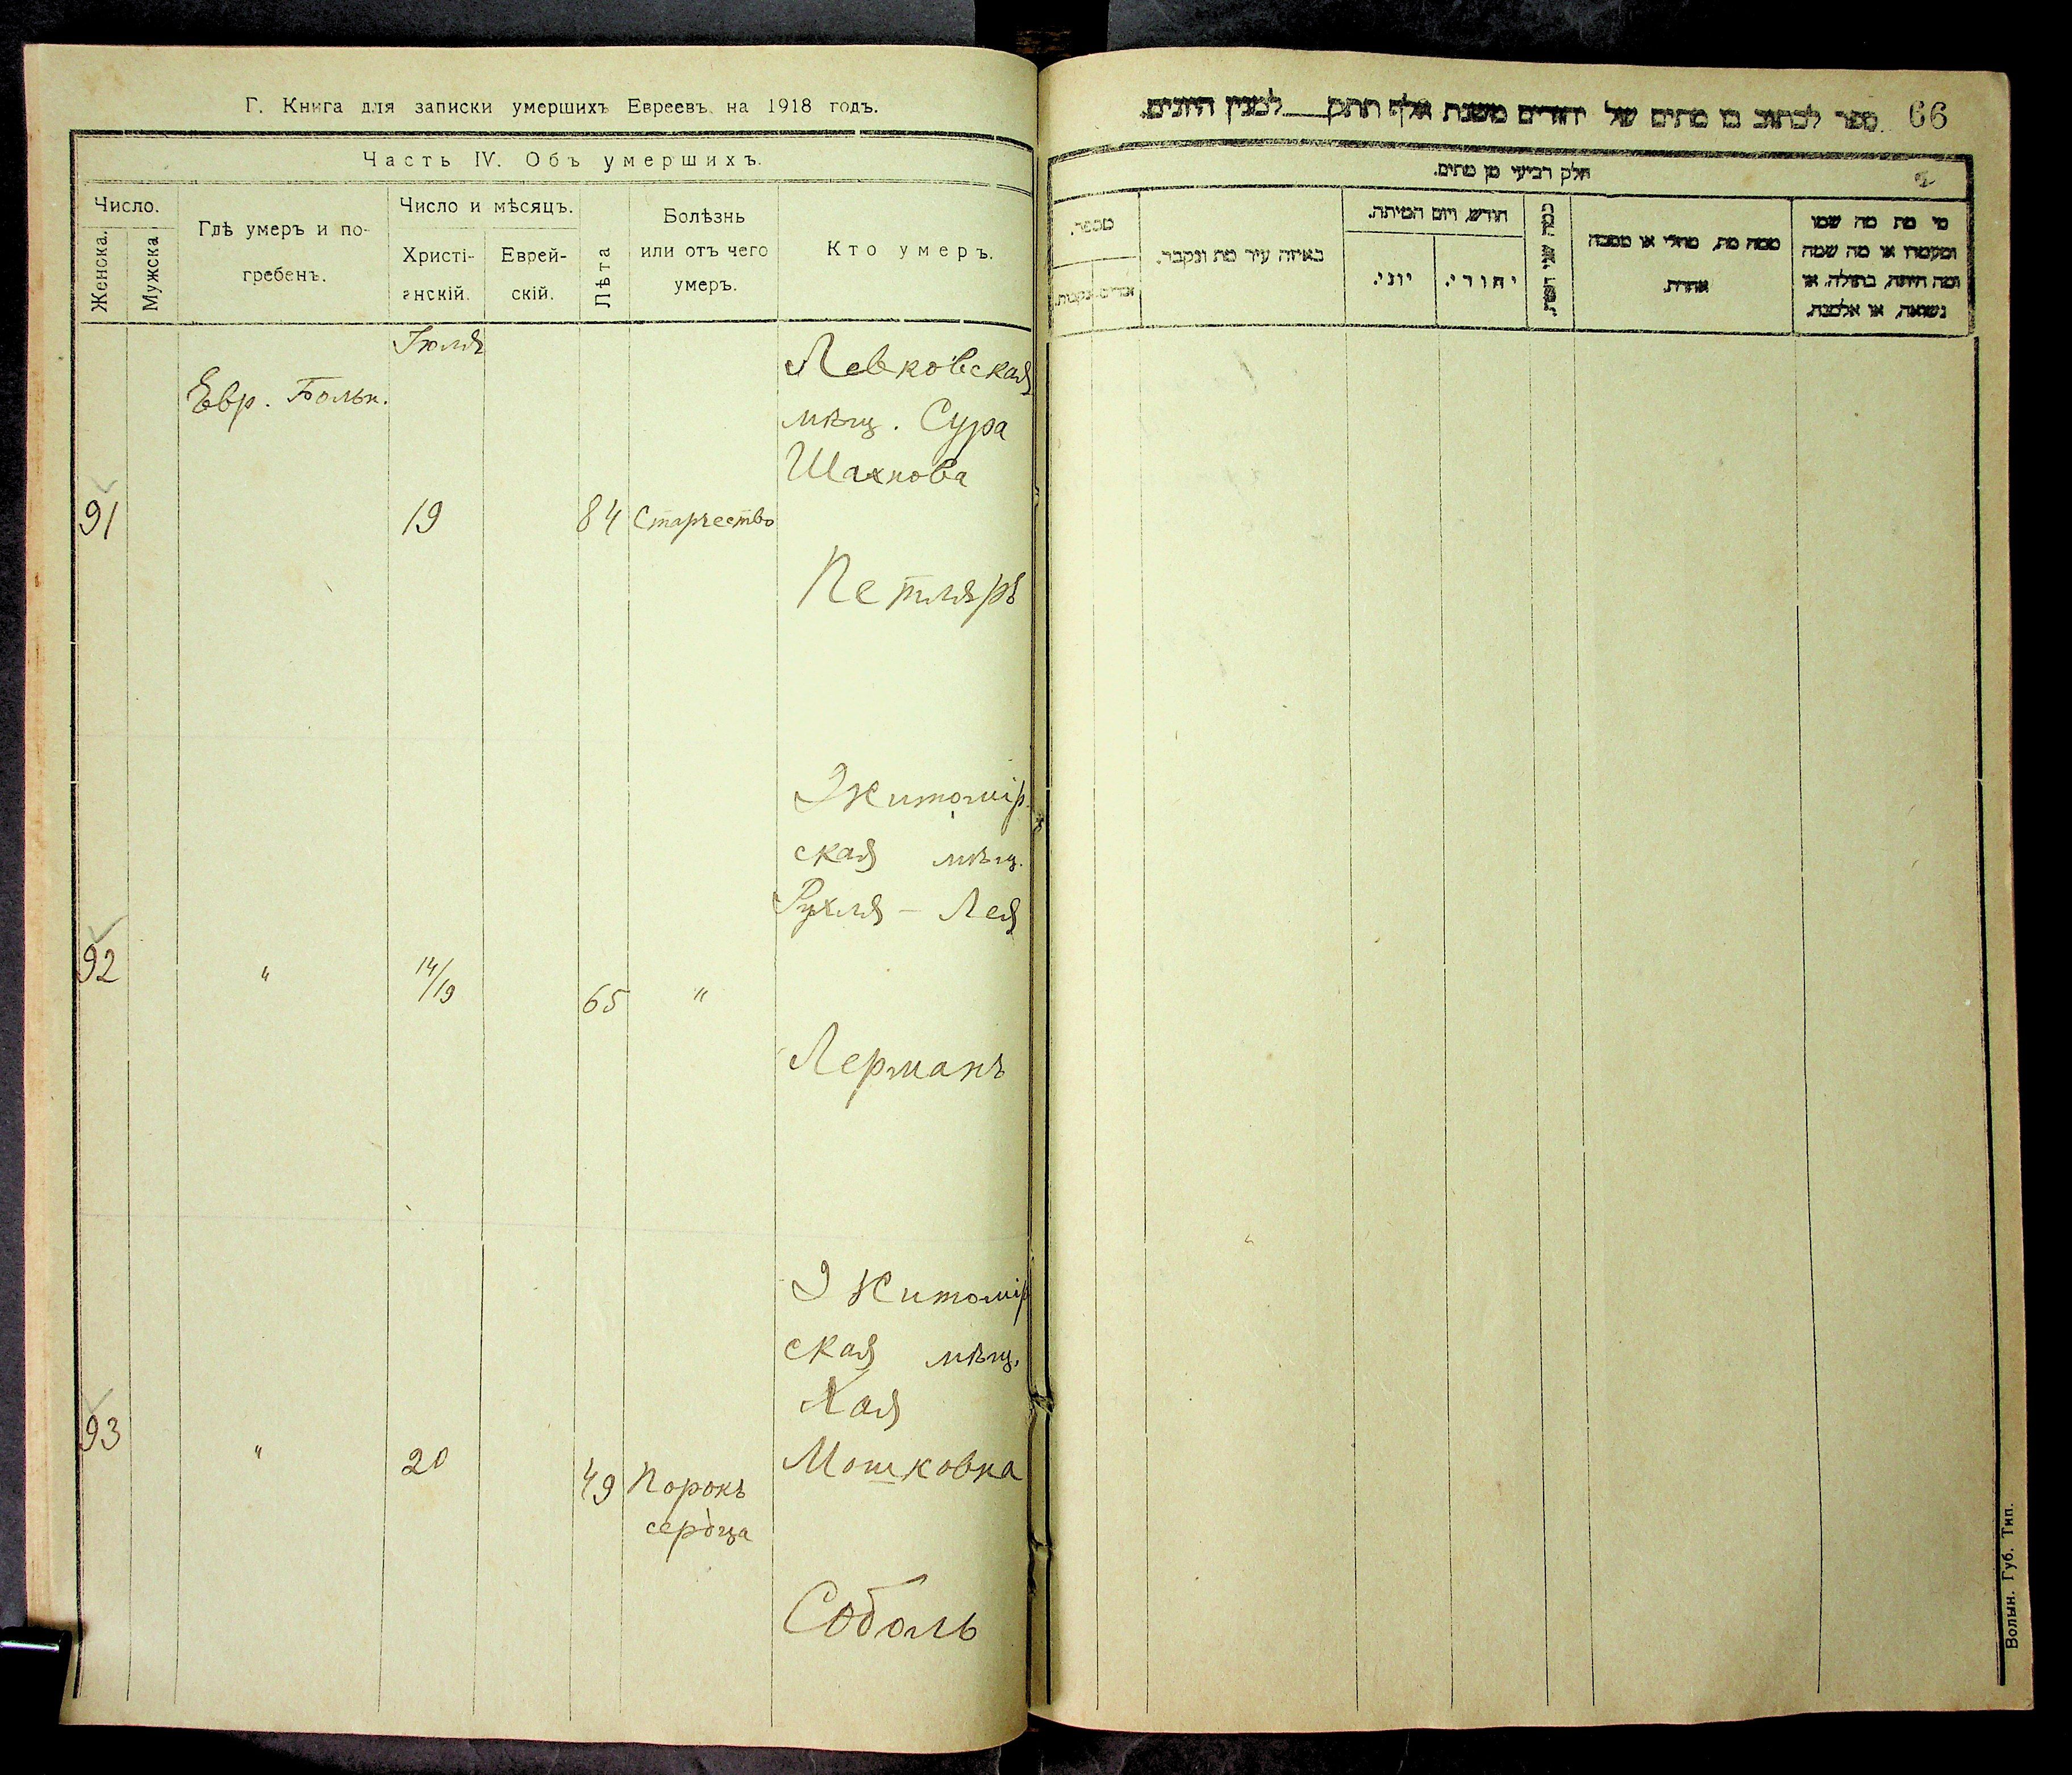 Г. Книга для записки умершихъ Евреевъ на 1918 годъ.
Часть IV. Объ умершихъ.
Число.
Женска.
Мужска
Гдѣ умеръ и по-
гребенъ.
Число и мѣсяцъ.
Христі-
анскій.
Еврей-
скій.
Лѣта
Болѣзнь
или отъ чего
умеръ.
Кто умеръ.
Іюля
Евр. Больн.
91
19
84
Старчество
Левковская
мѣщ. Сура
Шахнова
Петляръ
92
"
14/19
65
"
Житомір
ская мѣщ.
Рухля - Лея
Лерманъ
93
"
20
49
Порокъ
сердца
Житомір
ская мѣщ.
Хая
Мошковна
Соболь
ספר לכתוב בו מתים של יהודים משנת אלף תתק___למנין היונים. 66
חלק רביעי מן מתים.
מספר.
זכרים
נקבות.
באיזה עיר מת ונקבר.
חודש, ויום המיתה.
יוני.
יהודי.
כמה שני חייו.
ממה מת, מחלי או מסבה
אחרת.
מי מת מה שמו
ומעמדו או מה שמה
ומה היתה, בתולה, או
נשואה, או אלמנה.
Волын. Губ. Тип.